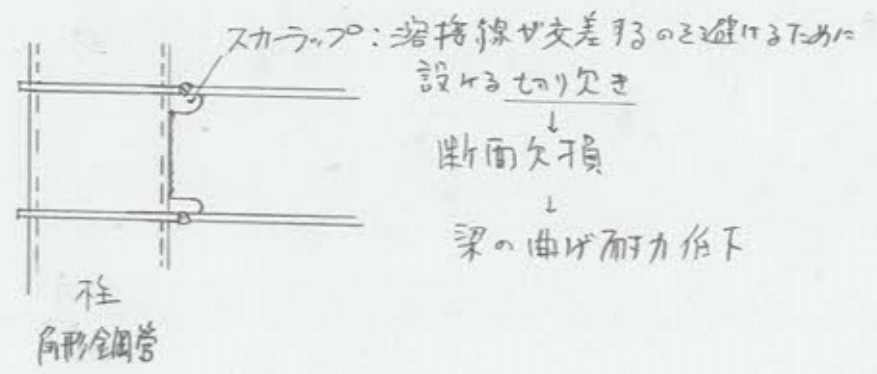 スカーラップ:溶接線が交差するのを避けるために
設ける切り欠き
↓
断面欠損
↓
梁の曲げ耐力低下
柱
角形鋼管